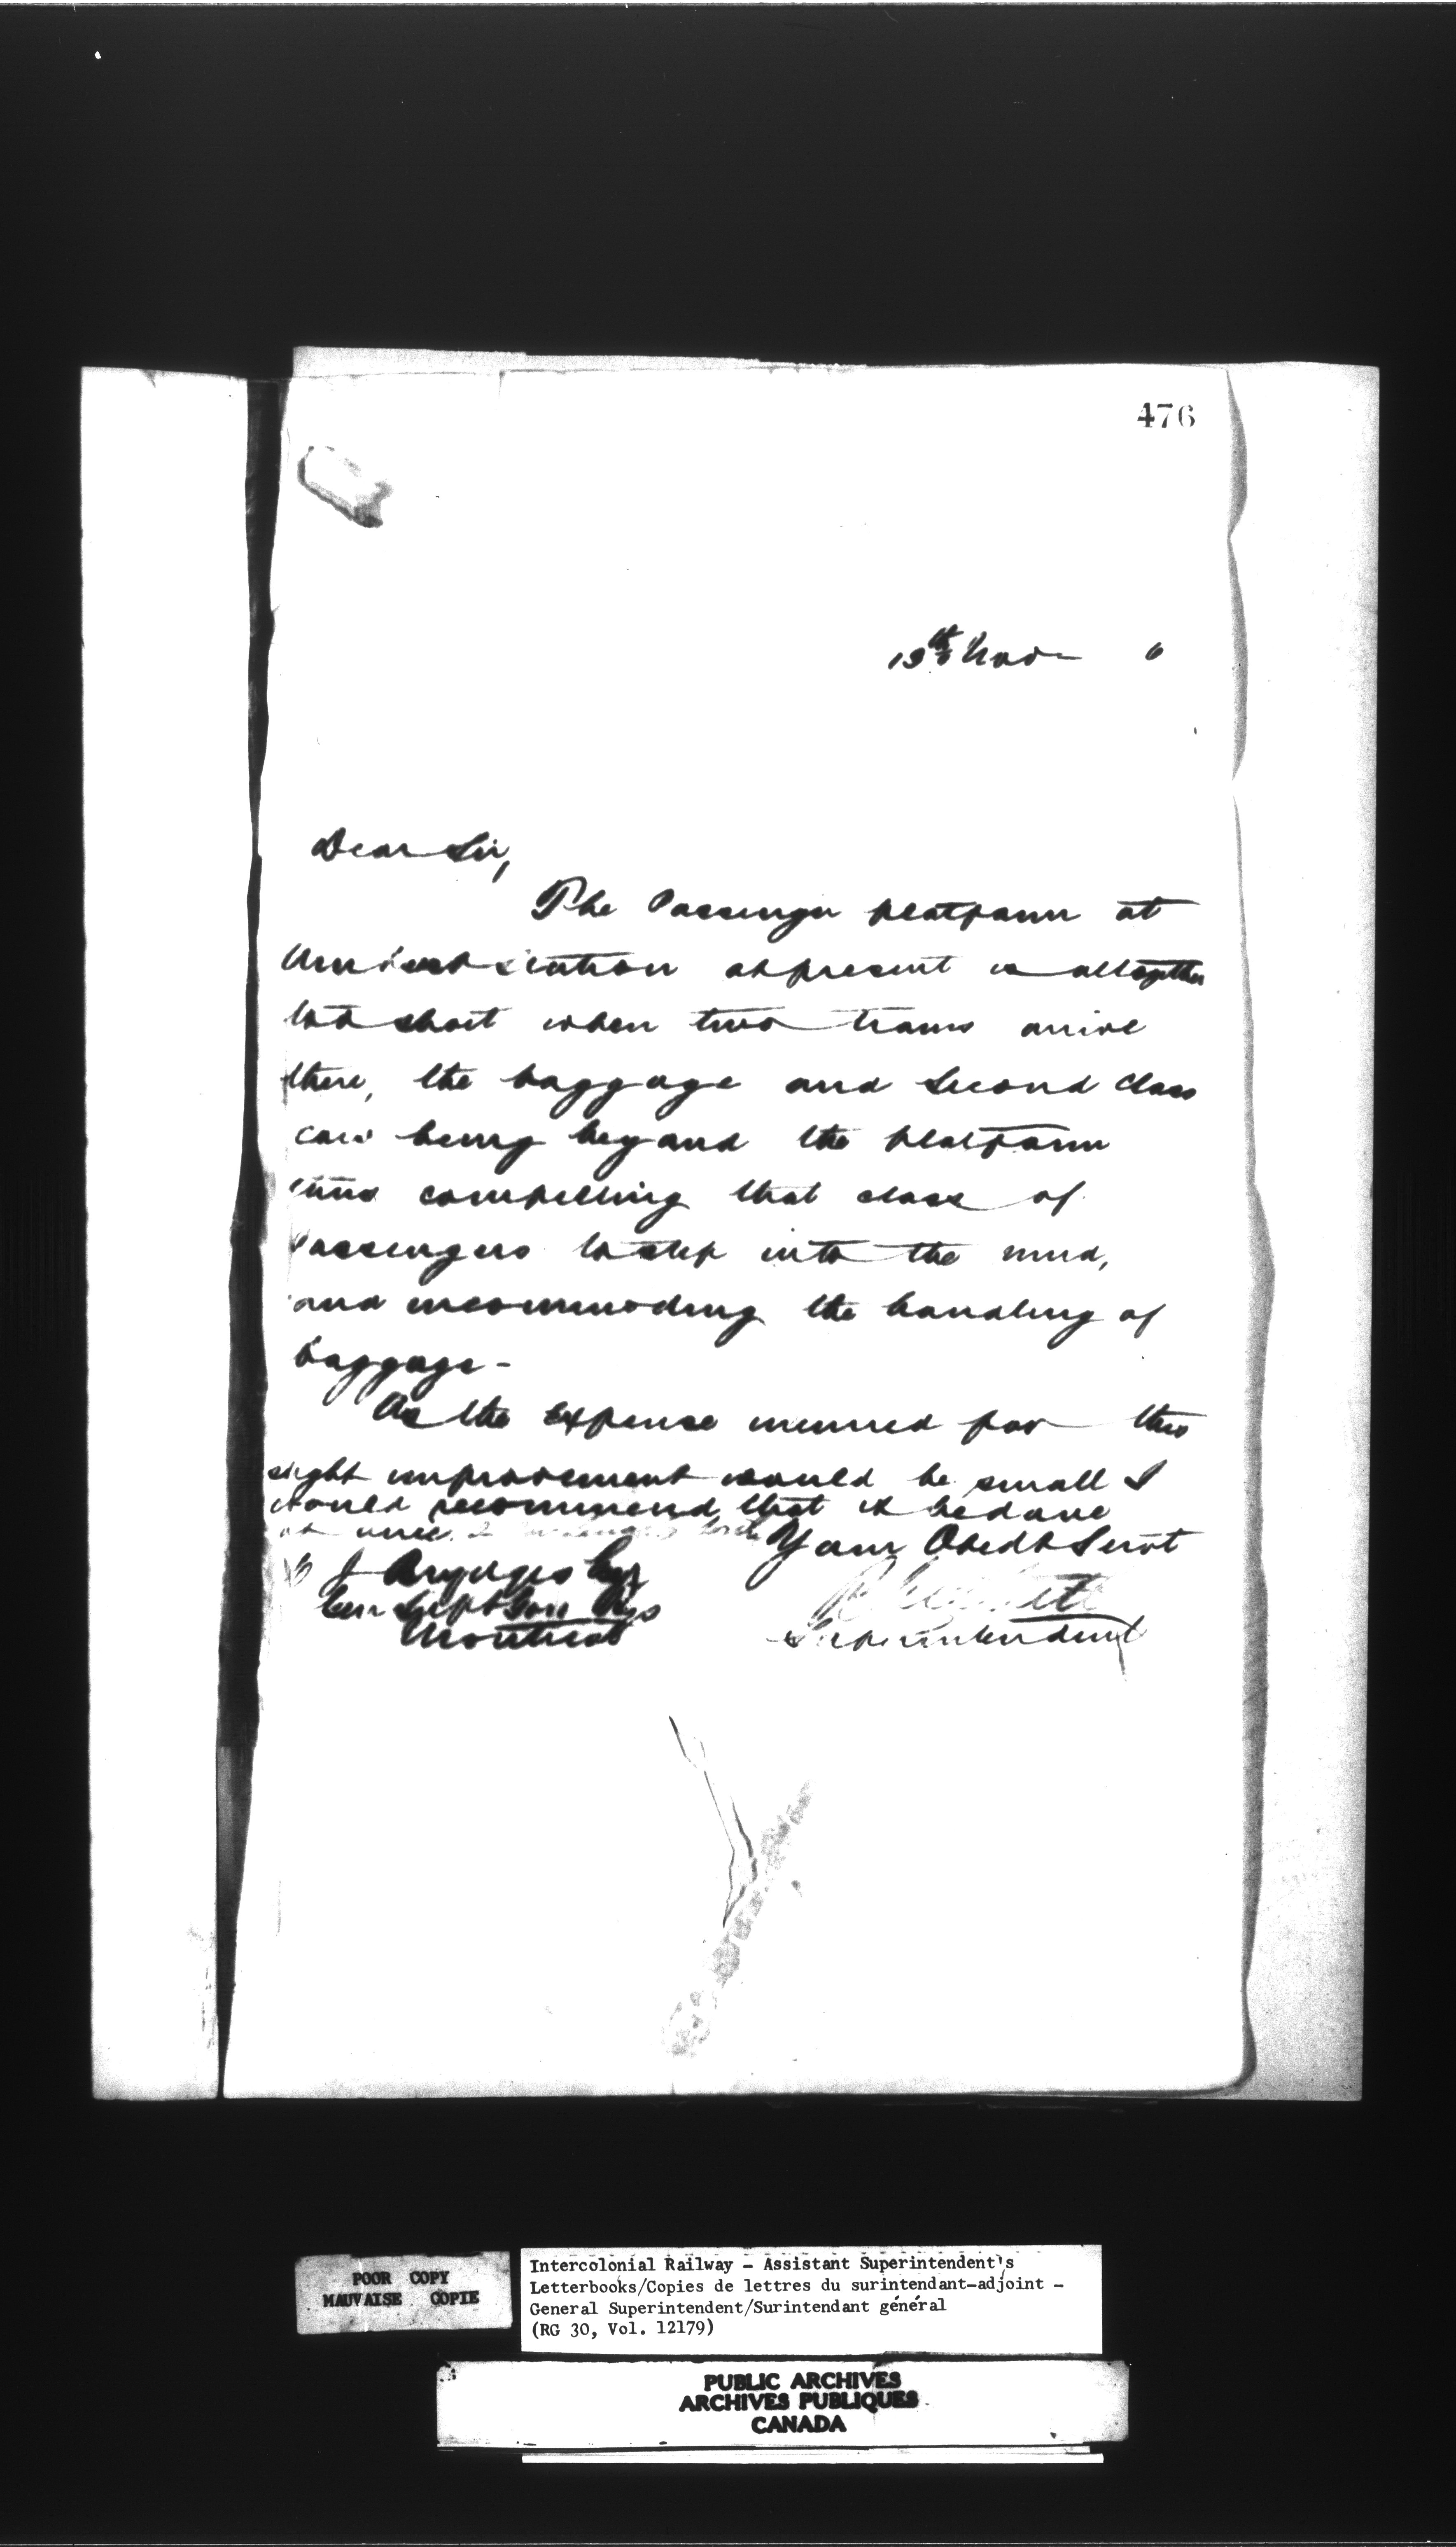 476
13th Nov 6
Dear Sir,
The Passenger platform at
Amherst Station at present is altogether
too short when two trains arrive
there, the baggage and Second Class
cars being beyond the platform
and compelling that class of
Passengers to step into the mud,
and incommoding the handling of
baggage -
As the Expense incurred for this
slight improvement would be small I
would recommend that it be done
at once.
Your Obedt Servt
J Brydges Esq
Gen Supt Gov Rys
Montreal
Superintendent
POOR COPY
MAUVAISE COPIE
Intercolonial Railway - Assistant Superintendent's
Letterbooks/Copies de lettres du surintendant-adjoint -
General Superintendent/Surintendant général
(RG 30, Vol. 12179)
PUBLIC ARCHIVES
ARCHIVES PUBLIQUES
CANADA